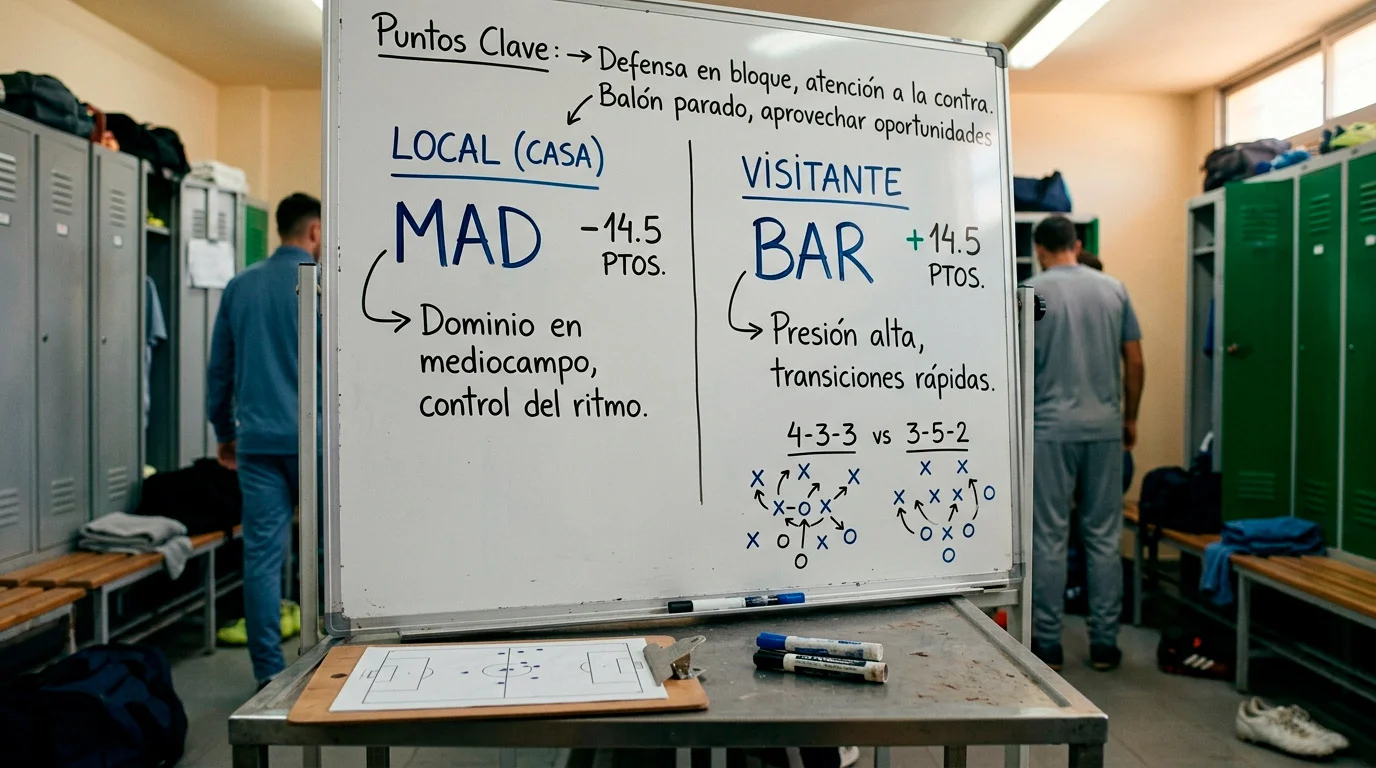 Puntos Clave: → Defensa en bloque, atención a la contra.
Balón parado, aprovechar oportunidades
LOCAL (CASA)
MAD -14.5
PTOS.
Dominio en
mediocampo,
control del ritmo.
VISITANTE
BAR +14.5
PTOS.
Presión alta,
transiciones rápidas.
4-3-3 vs 3-5-2
X X X
X-O X
X O X O
O
X X
X X X O
O X O
O